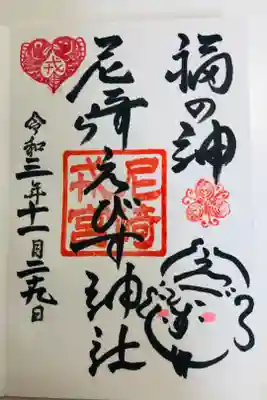 福の神
えびす
尼崎えびす神社
尼崎
戎宮
令和三年十一月二十九日